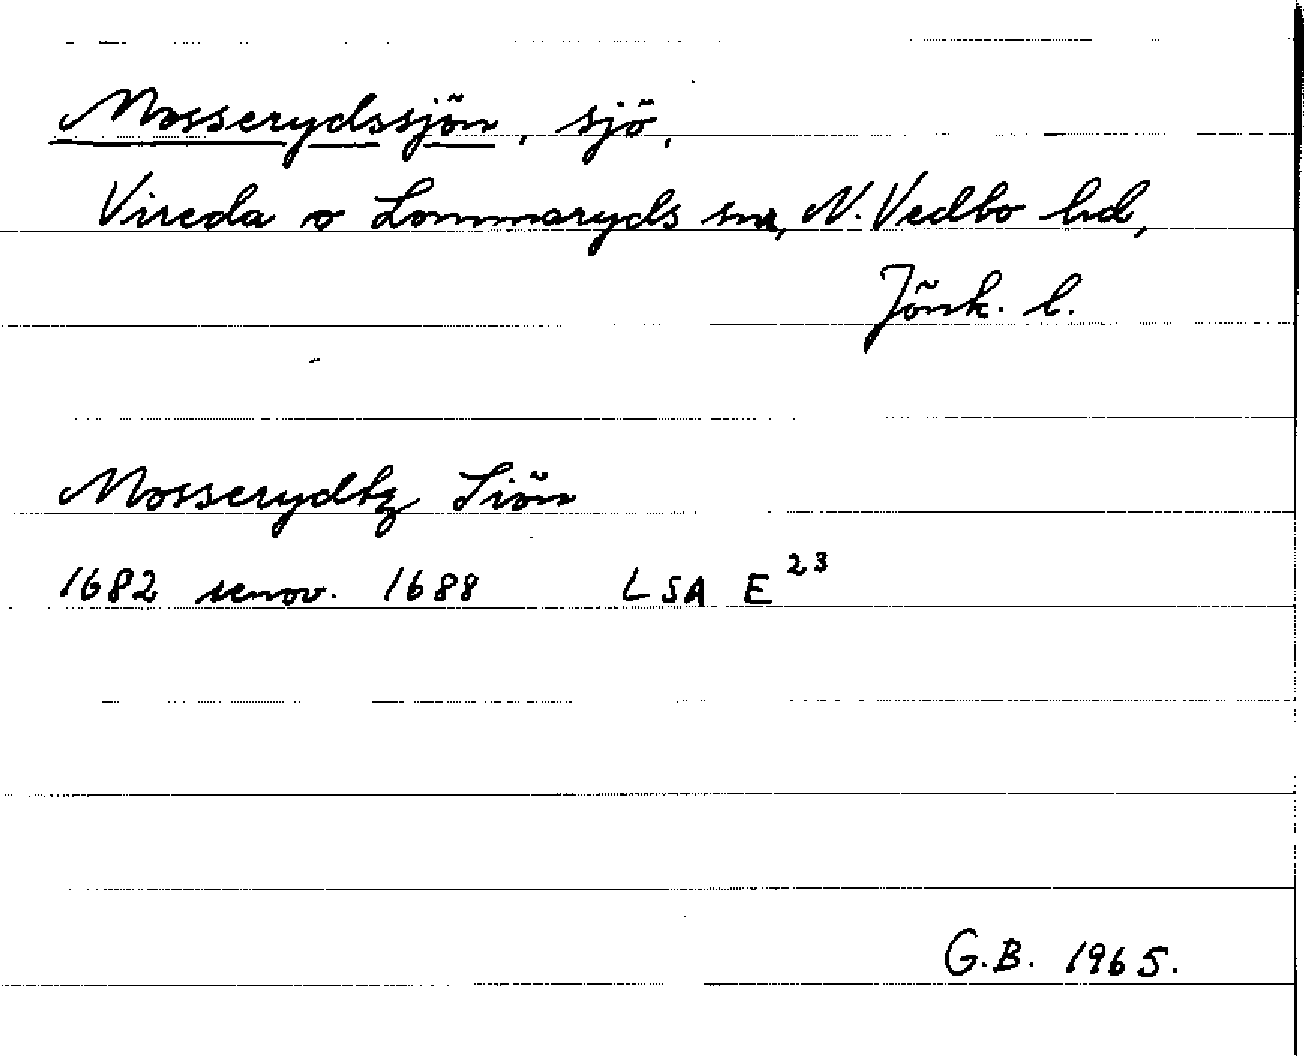 Mosserydssjön, sjö,
Vireda o Lommaryds snr, N. Vedbo hd,
Jönk. l.
Mosserydtz Siön
1682 renov. 1688 LSA E 23
G.B. 1965.